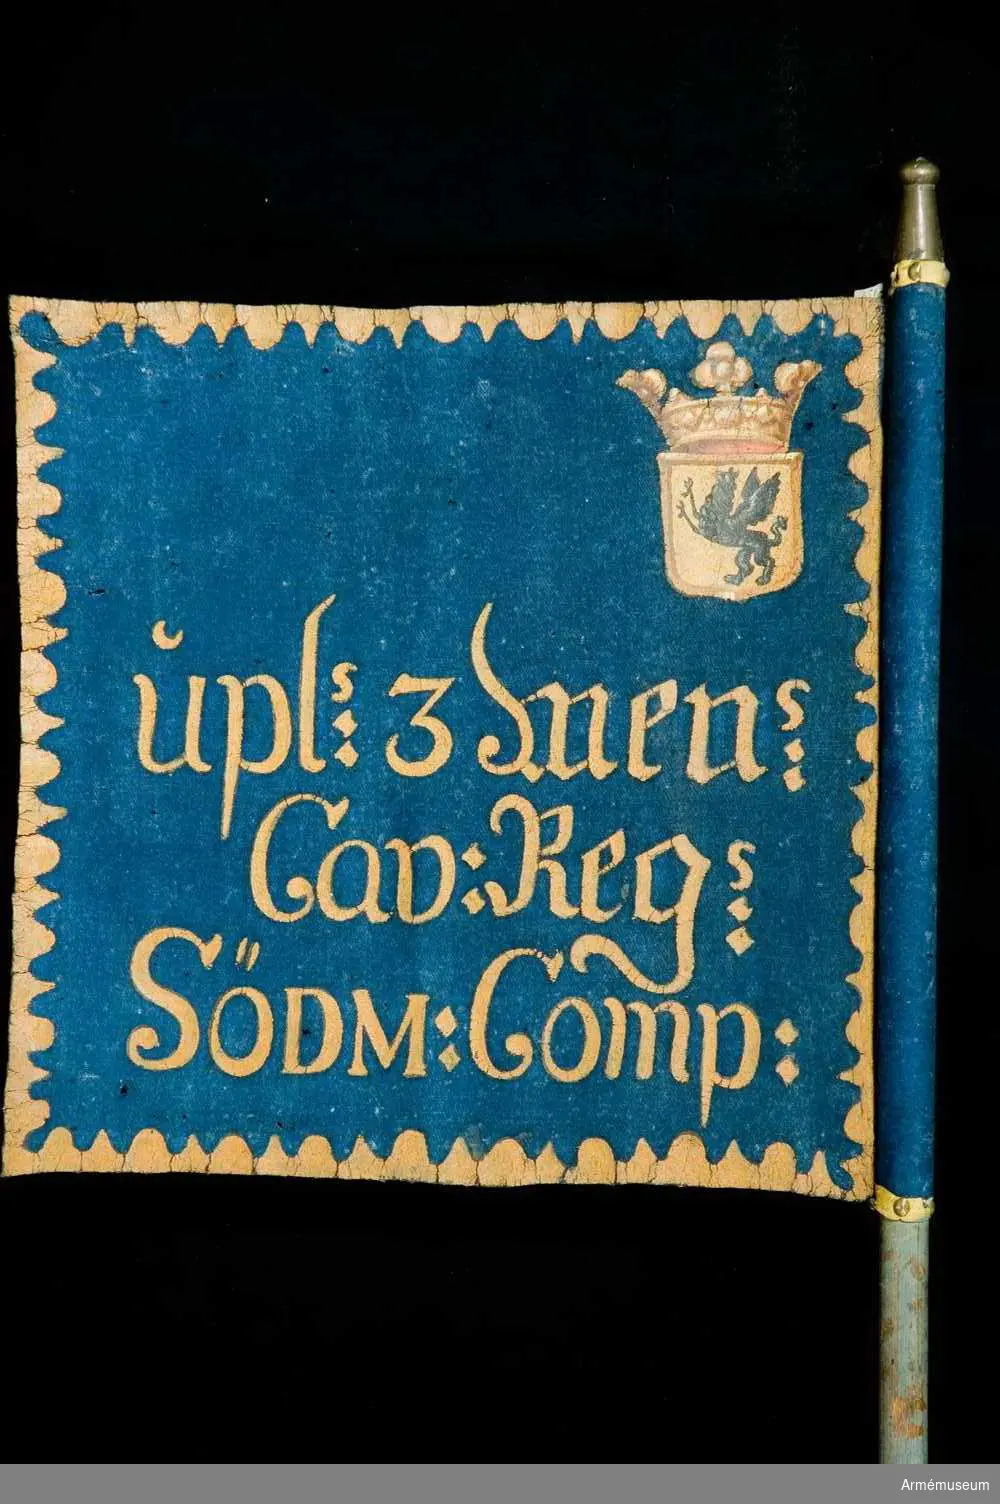 ůpl:s 3 Men:s
Cav: Reg:s
SÖDM: Comp:
Armémuseum